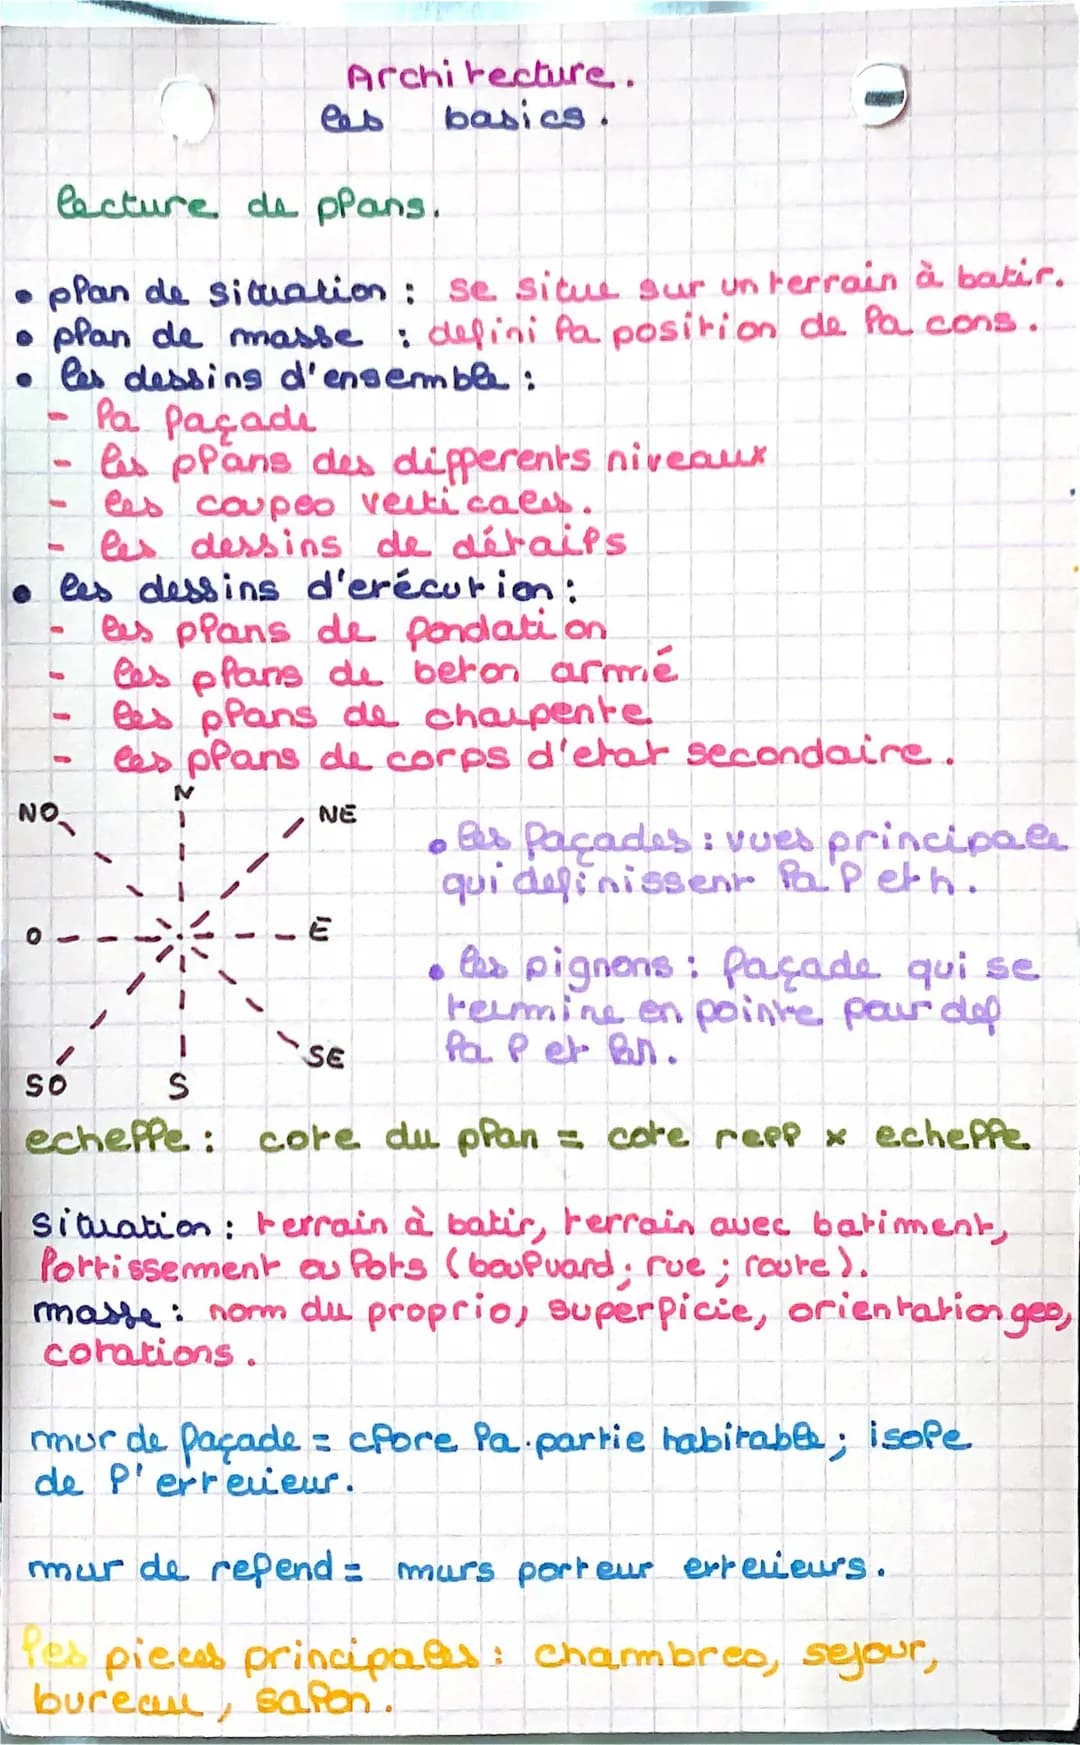 Architecture.
les basics.
lecture de plans.
• plan de situation : se situe sur un terrain à batir.
• plan de masse : defini la position de la cons.
• les dessins d'ensemble :
- la façade
- les plans des differents niveaux
- les coupes verticales.
- les dessins de détails
• les dessins d'exécution :
- les plans de fondation
- les plans de beton armé
- les plans de charpente
- les plans de corps d'etat secondaire.
N
NO
NE
O
E
SO
S
SE
• les façades : vues principale
qui definissent la l et h.
• les pignons : façade qui se
termine en pointe pour def
la l et la h.
echelle : cote du plan = cote reel x echelle
situation : terrain à batir, terrain avec batiment,
lottissement ou lots (boulvard ; rue ; route).
masse : nom du proprio, superficie, orientation geo,
cotations.
mur de façade = clore la partie habitable ; isole
de l'exterieur.
mur de refend = murs porteur exterieurs.
les pieces principales : chambres, sejour,
bureau, salon.